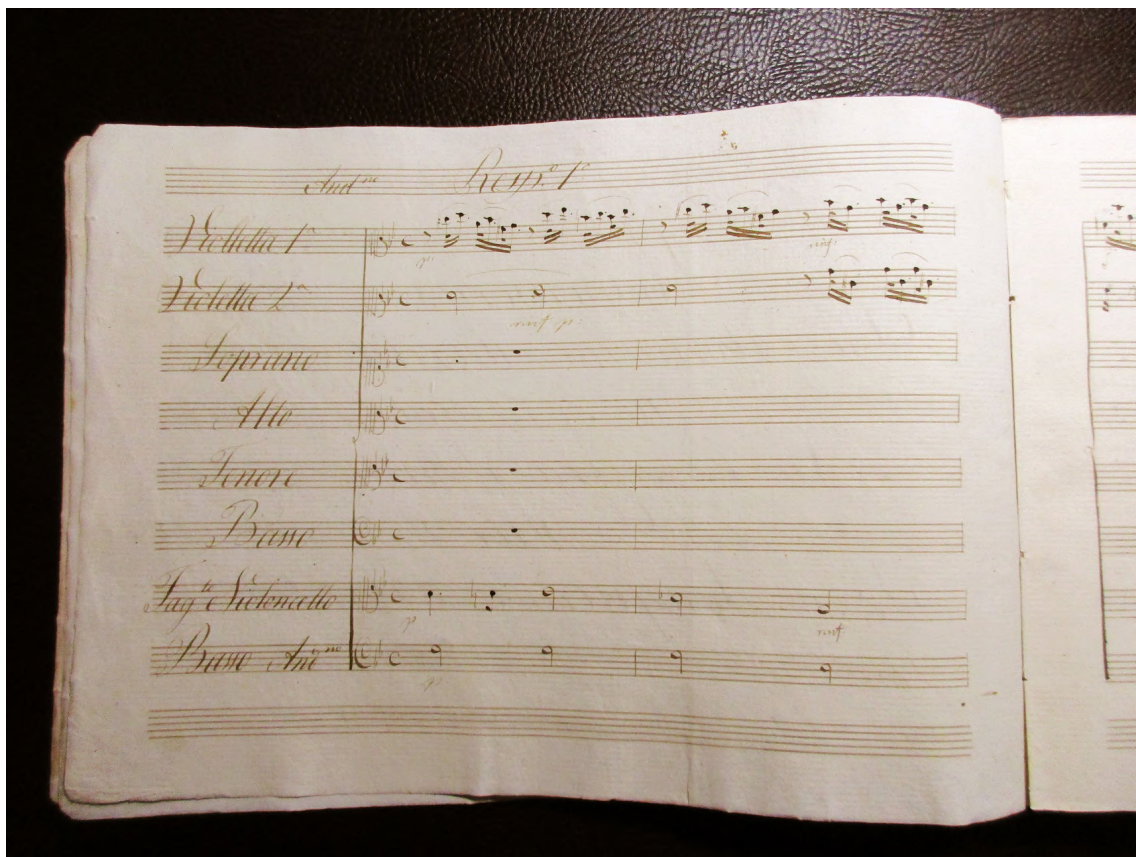 And.no Resp.o 1o
Violetta 1a
p:
mf:
Violetta 2a
mf p:
Soprano
Alto
Tenore
Basso
Fag.to e Violoncello
p
mf
Basso And.no
p: